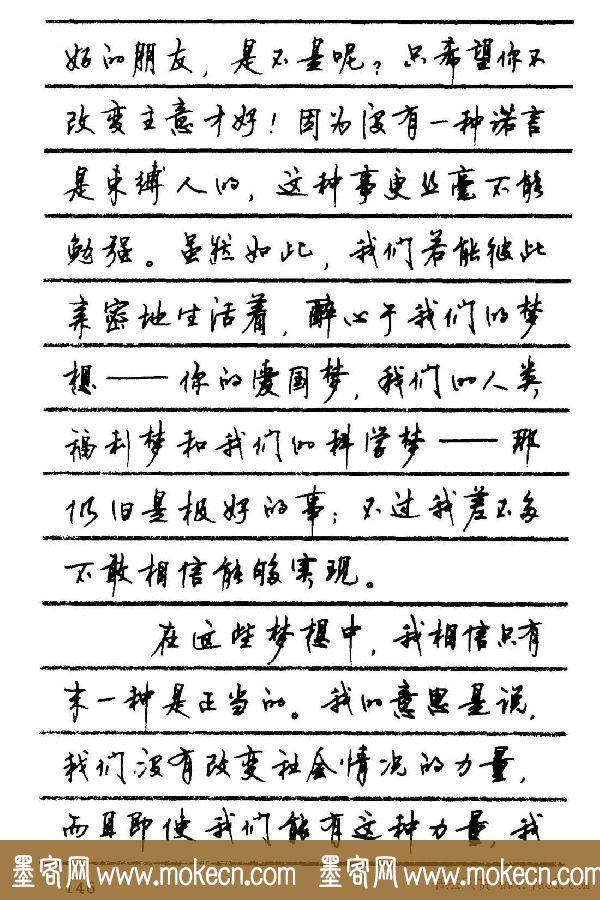 好的朋友，是不是呢？只希望你不
改变主意才好！因为没有一种诺言
是束缚人的，这种事更丝毫不能
勉强。虽然如此，我们若能彼此
亲密地生活着，醉心于我们的梦
想——你的爱国梦，我们的人类
福利梦和我们的科学梦——那
仍旧是极好的事；不过我差不多
不敢相信能够实现。
在这些梦想中，我相信只有
末一种是正当的。我的意思是说，
我们没有改变社会情况的力量，
而且即使我们能有这种力量，我
墨客网www.mokecn.com 墨客网www.mokecn.com
146